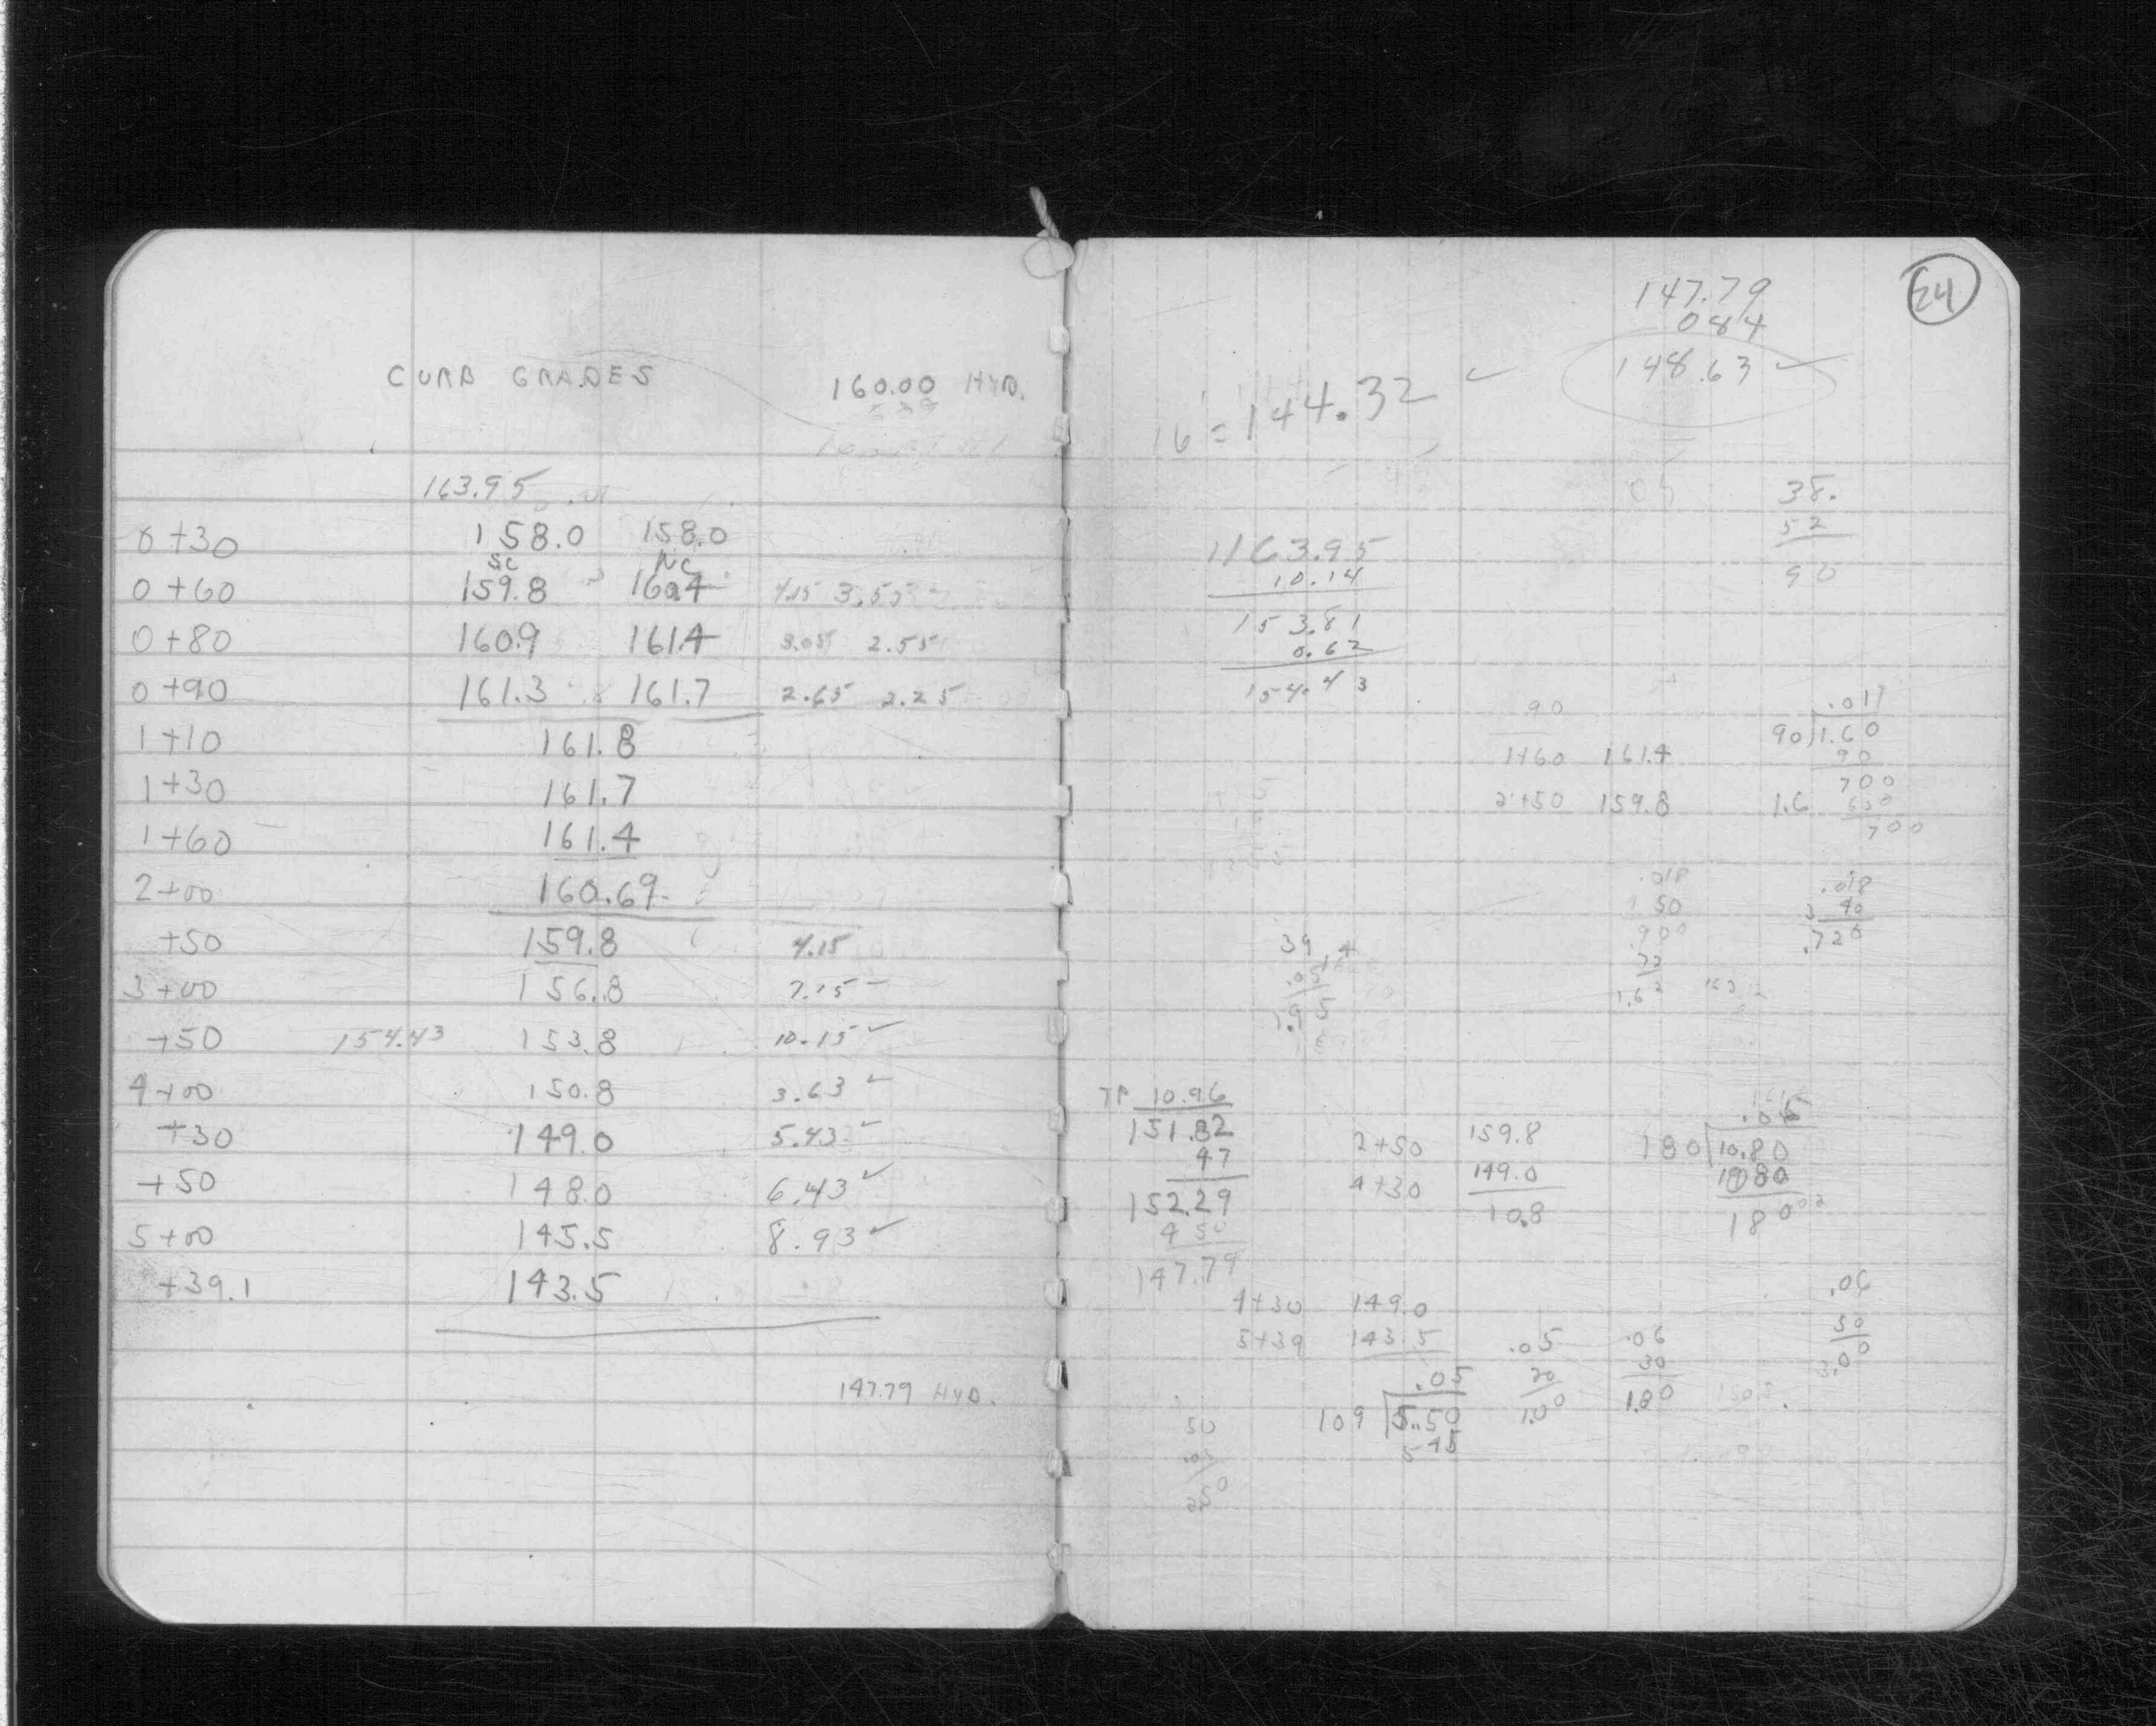 CURB GRADES 160.00 HYD.
163.95
0+30 158.0 158.0
SC NC
0+60 159.8 160.4 4.15 3.55
0+80 160.9 161.4 3.05 2.55
0+90 161.3 161.7 2.65 2.25
1+10 161.8
1+30 161.7
1+60 161.4
2+00 160.69
+50 159.8 4.15
3+00 156.8 7.15
+50 154.43 153.8 10.15 ✓
4+00 150.8 3.63 ✓
+30 149.0 5.43 ✓
+50 148.0 6.43 ✓
5+00 145.5 8.93 ✓
+39.1 143.5
147.79 HYD.
E4
147.79
084
148.63 ✓
16 = 144.32 ✓
38.
52
90
163.95
10.14
153.81
0.62
154.43
90
1+60 161.4
2+50 159.8 1.6
.017
90)1.60
90
700
630
700
.018
50
.900
72
1.62
.018
40
.720
39
.05
1.95
TP 10.96
151.82
47
152.29
4 50
147.79
2+50 159.8
4+30 149.0
10.8
.06
180)10.80
1080
180
4+30 149.0
5+39 143.5
.05
109)5.50
5 45
.05
20
1.00
.06
30
1.80
150.8
.06
50
3.00
50
.05
250